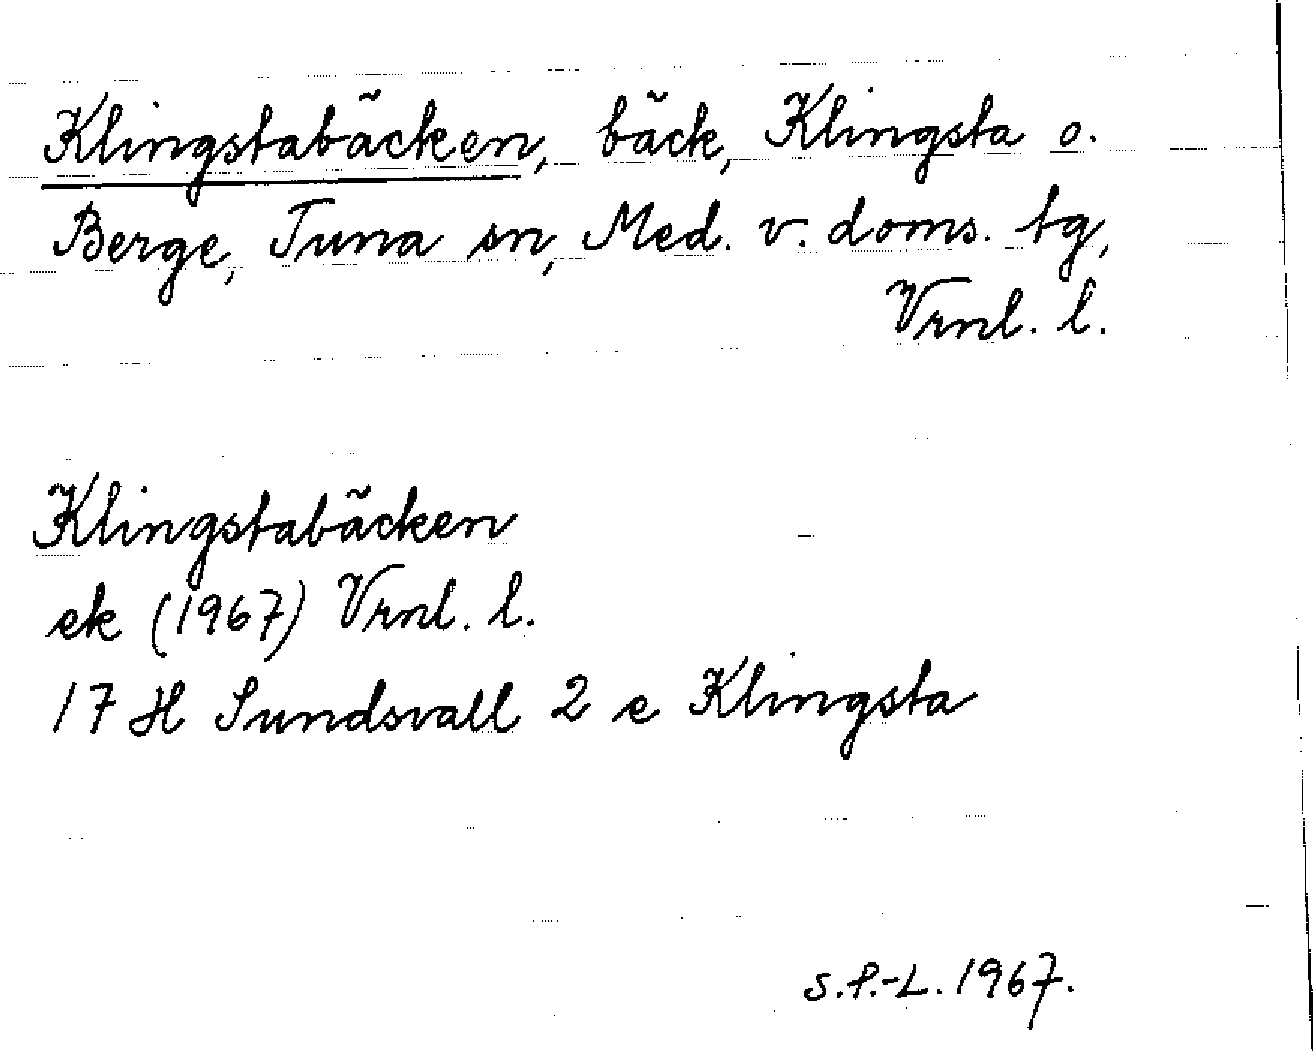 Klingstabäcken, bäck, Klingsta o.
Berge, Tuna sn, Med. v. doms. tg,
Vrnl. l.
Klingstabäcken
ek (1967) Vrnl. l.
17 H Sundsvall 2 e Klingsta
S.P.-L. 1967.